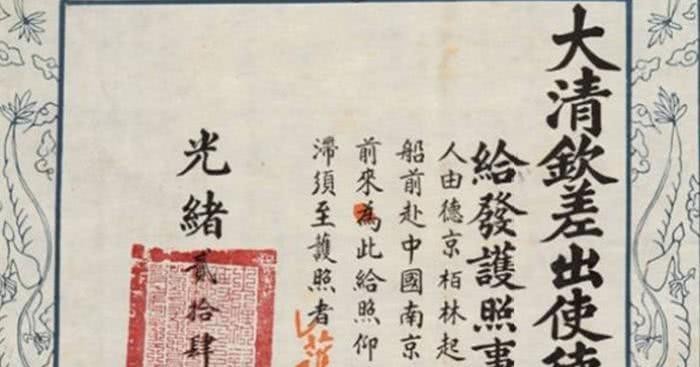 大清欽差出使
給發護照事
人由德京栢林起
船前赴中國南京
前來為此給照仰
滯須至護照者
光緒貳拾肆